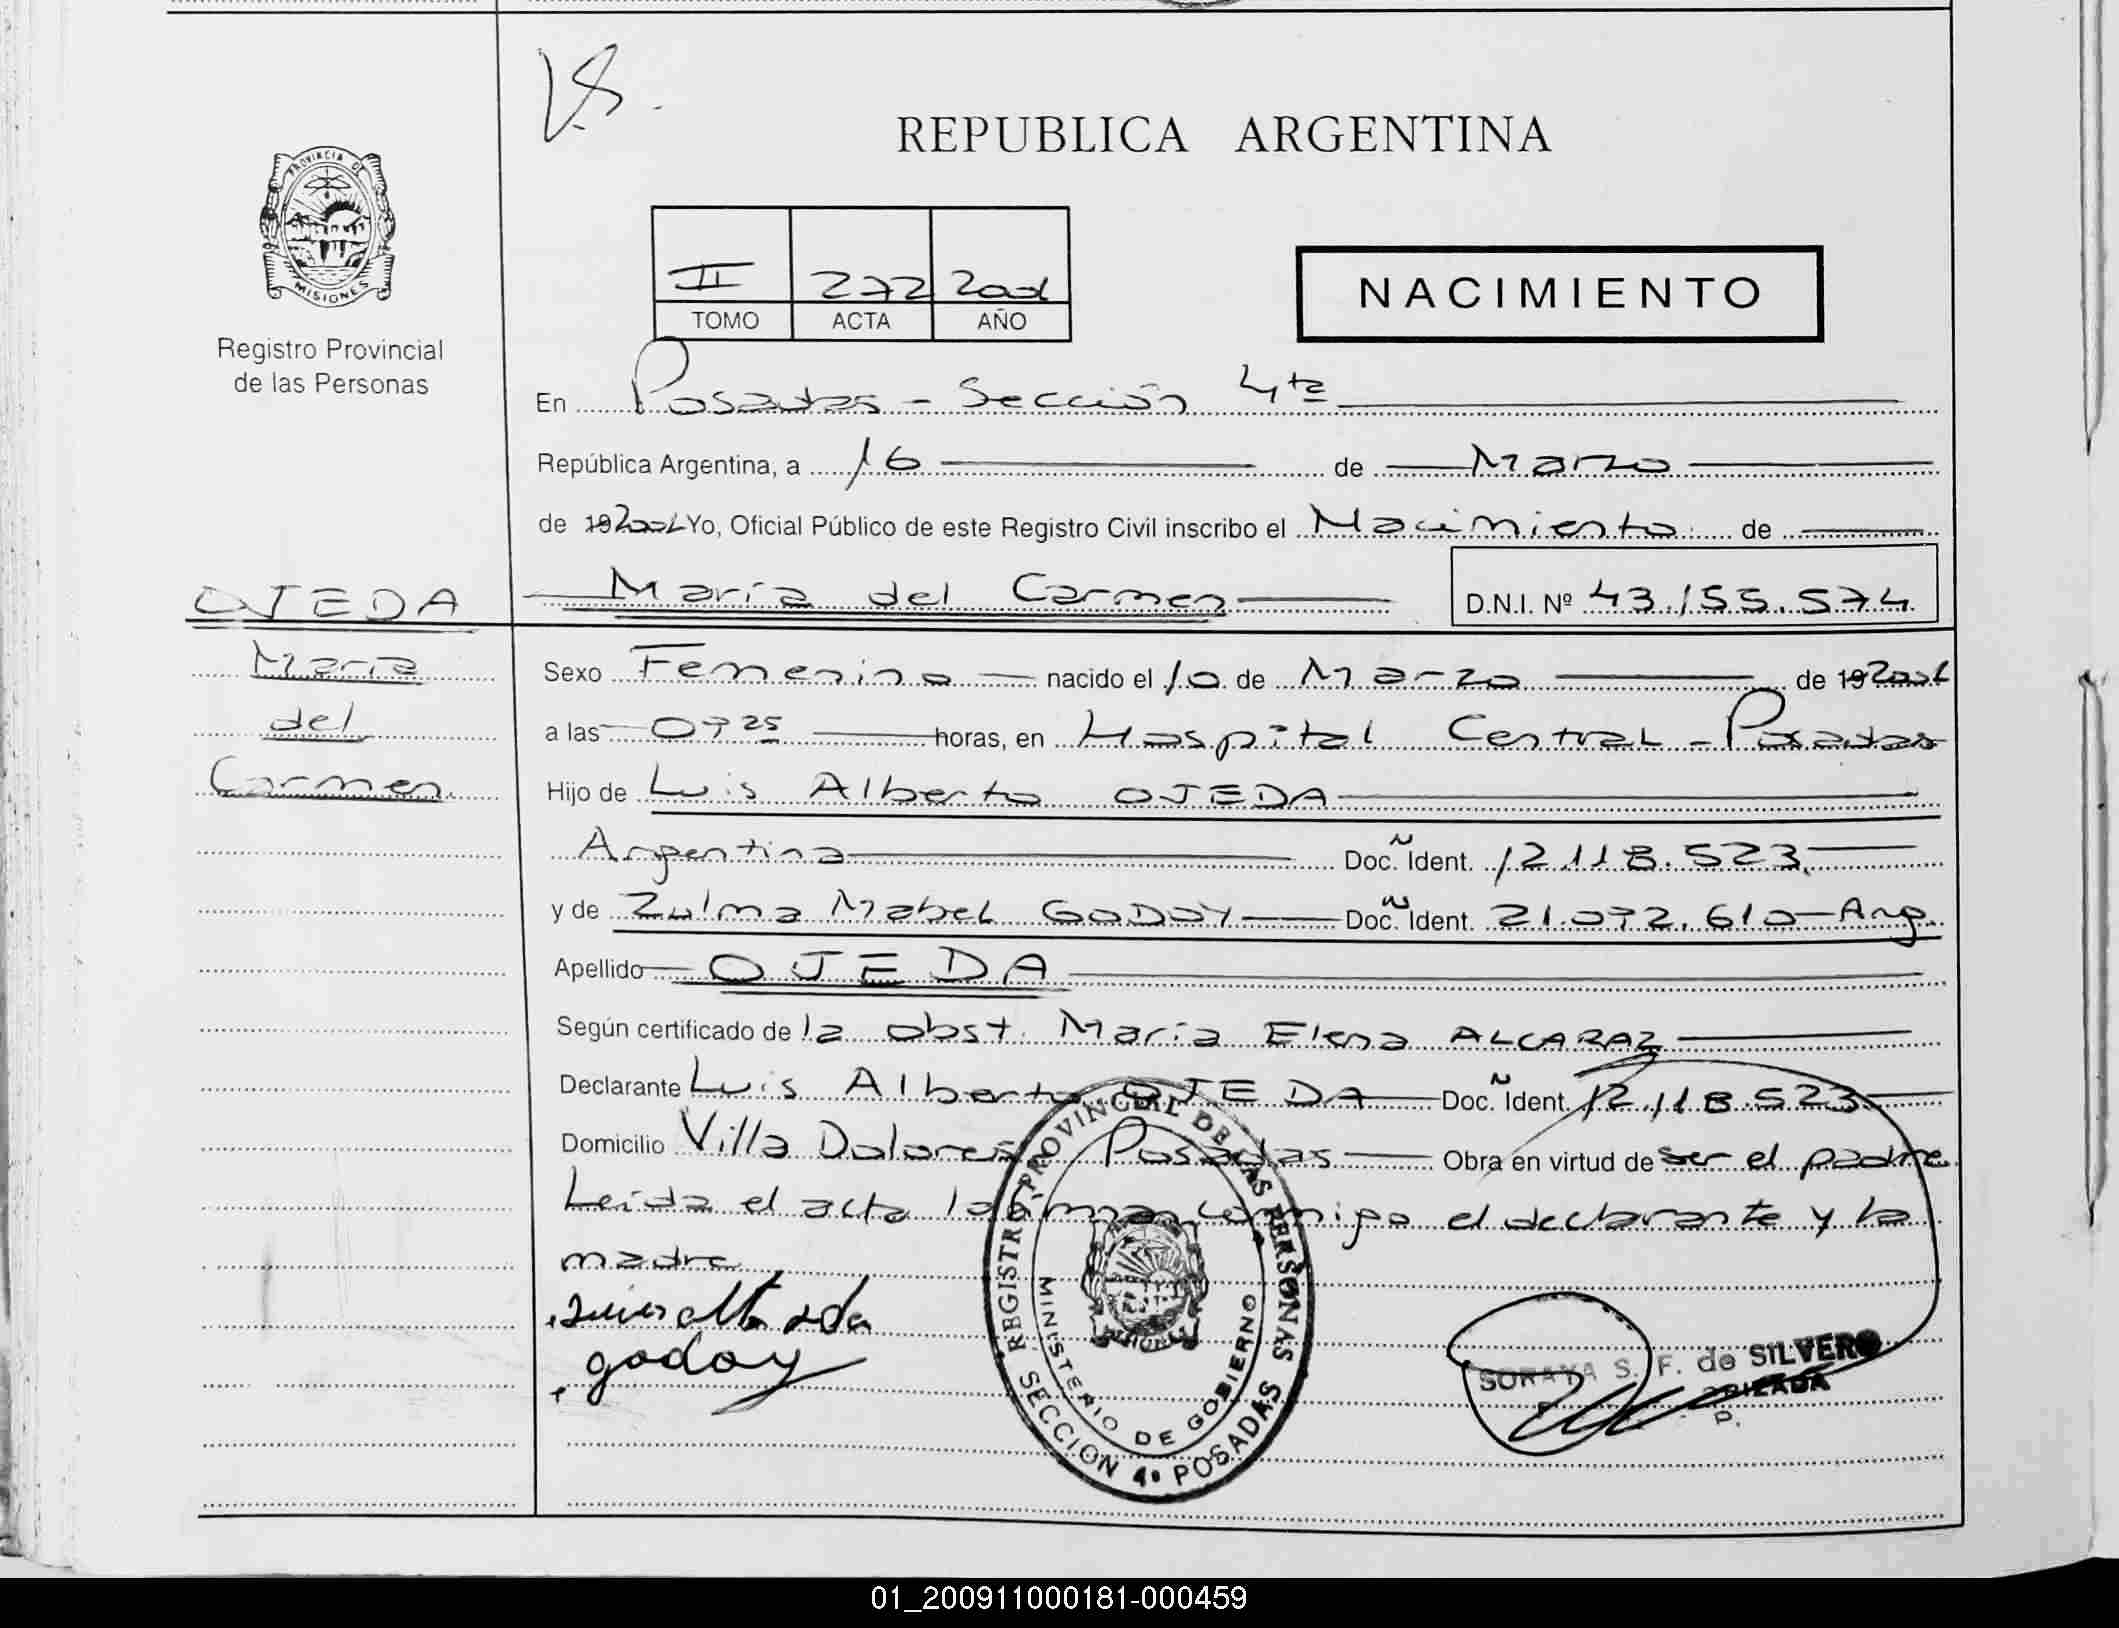 V.S.
REPUBLICA ARGENTINA
PROVINCIA DE
MISIONES
Registro Provincial
de las Personas
II 272 2001
TOMO ACTA AÑO
NACIMIENTO
En Posadas - Sección 4ta
República Argentina, a 16 de Marzo
de 19 2001 Yo, Oficial Público de este Registro Civil inscribo el Nacimiento de
OJEDA María del Carmen D.N.I. Nº 43.155.574
María
del
Carmen
Sexo Femenino nacido el 10 de Marzo de 19 2001
a las 07 25 horas, en Hospital Central - Posadas
Hijo de Luis Alberto OJEDA
Argentina Doc. Ident. 12.118.523
y de Zulma Mabel GODOY Doc. Ident. 21.072.610 - Arg.
Apellido OJEDA
Según certificado de la obst. María Elena ALCARAZ
Declarante Luis Alberto OJEDA Doc. Ident. 12.118.523
Domicilio Villa Dolores Posadas Obra en virtud de ser el padre
Leida el acta la firman conmigo el declarante y la
madre
godoy
REGISTRO PROVINCIAL DE LAS PERSONAS
MINISTERIO DE GOBIERNO
SECCION 4ª POSADAS
SORAYA S. F. de SILVERO
01_200911000181-000459